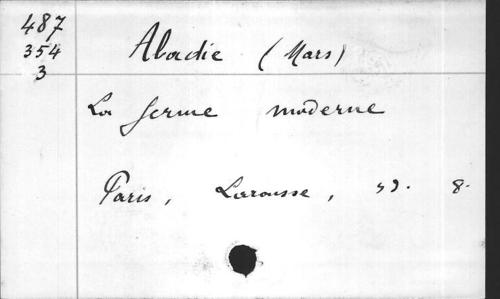 487
354
3
Abadie (Mars)
La ferme moderne
Paris, Larousse, sd. 8.